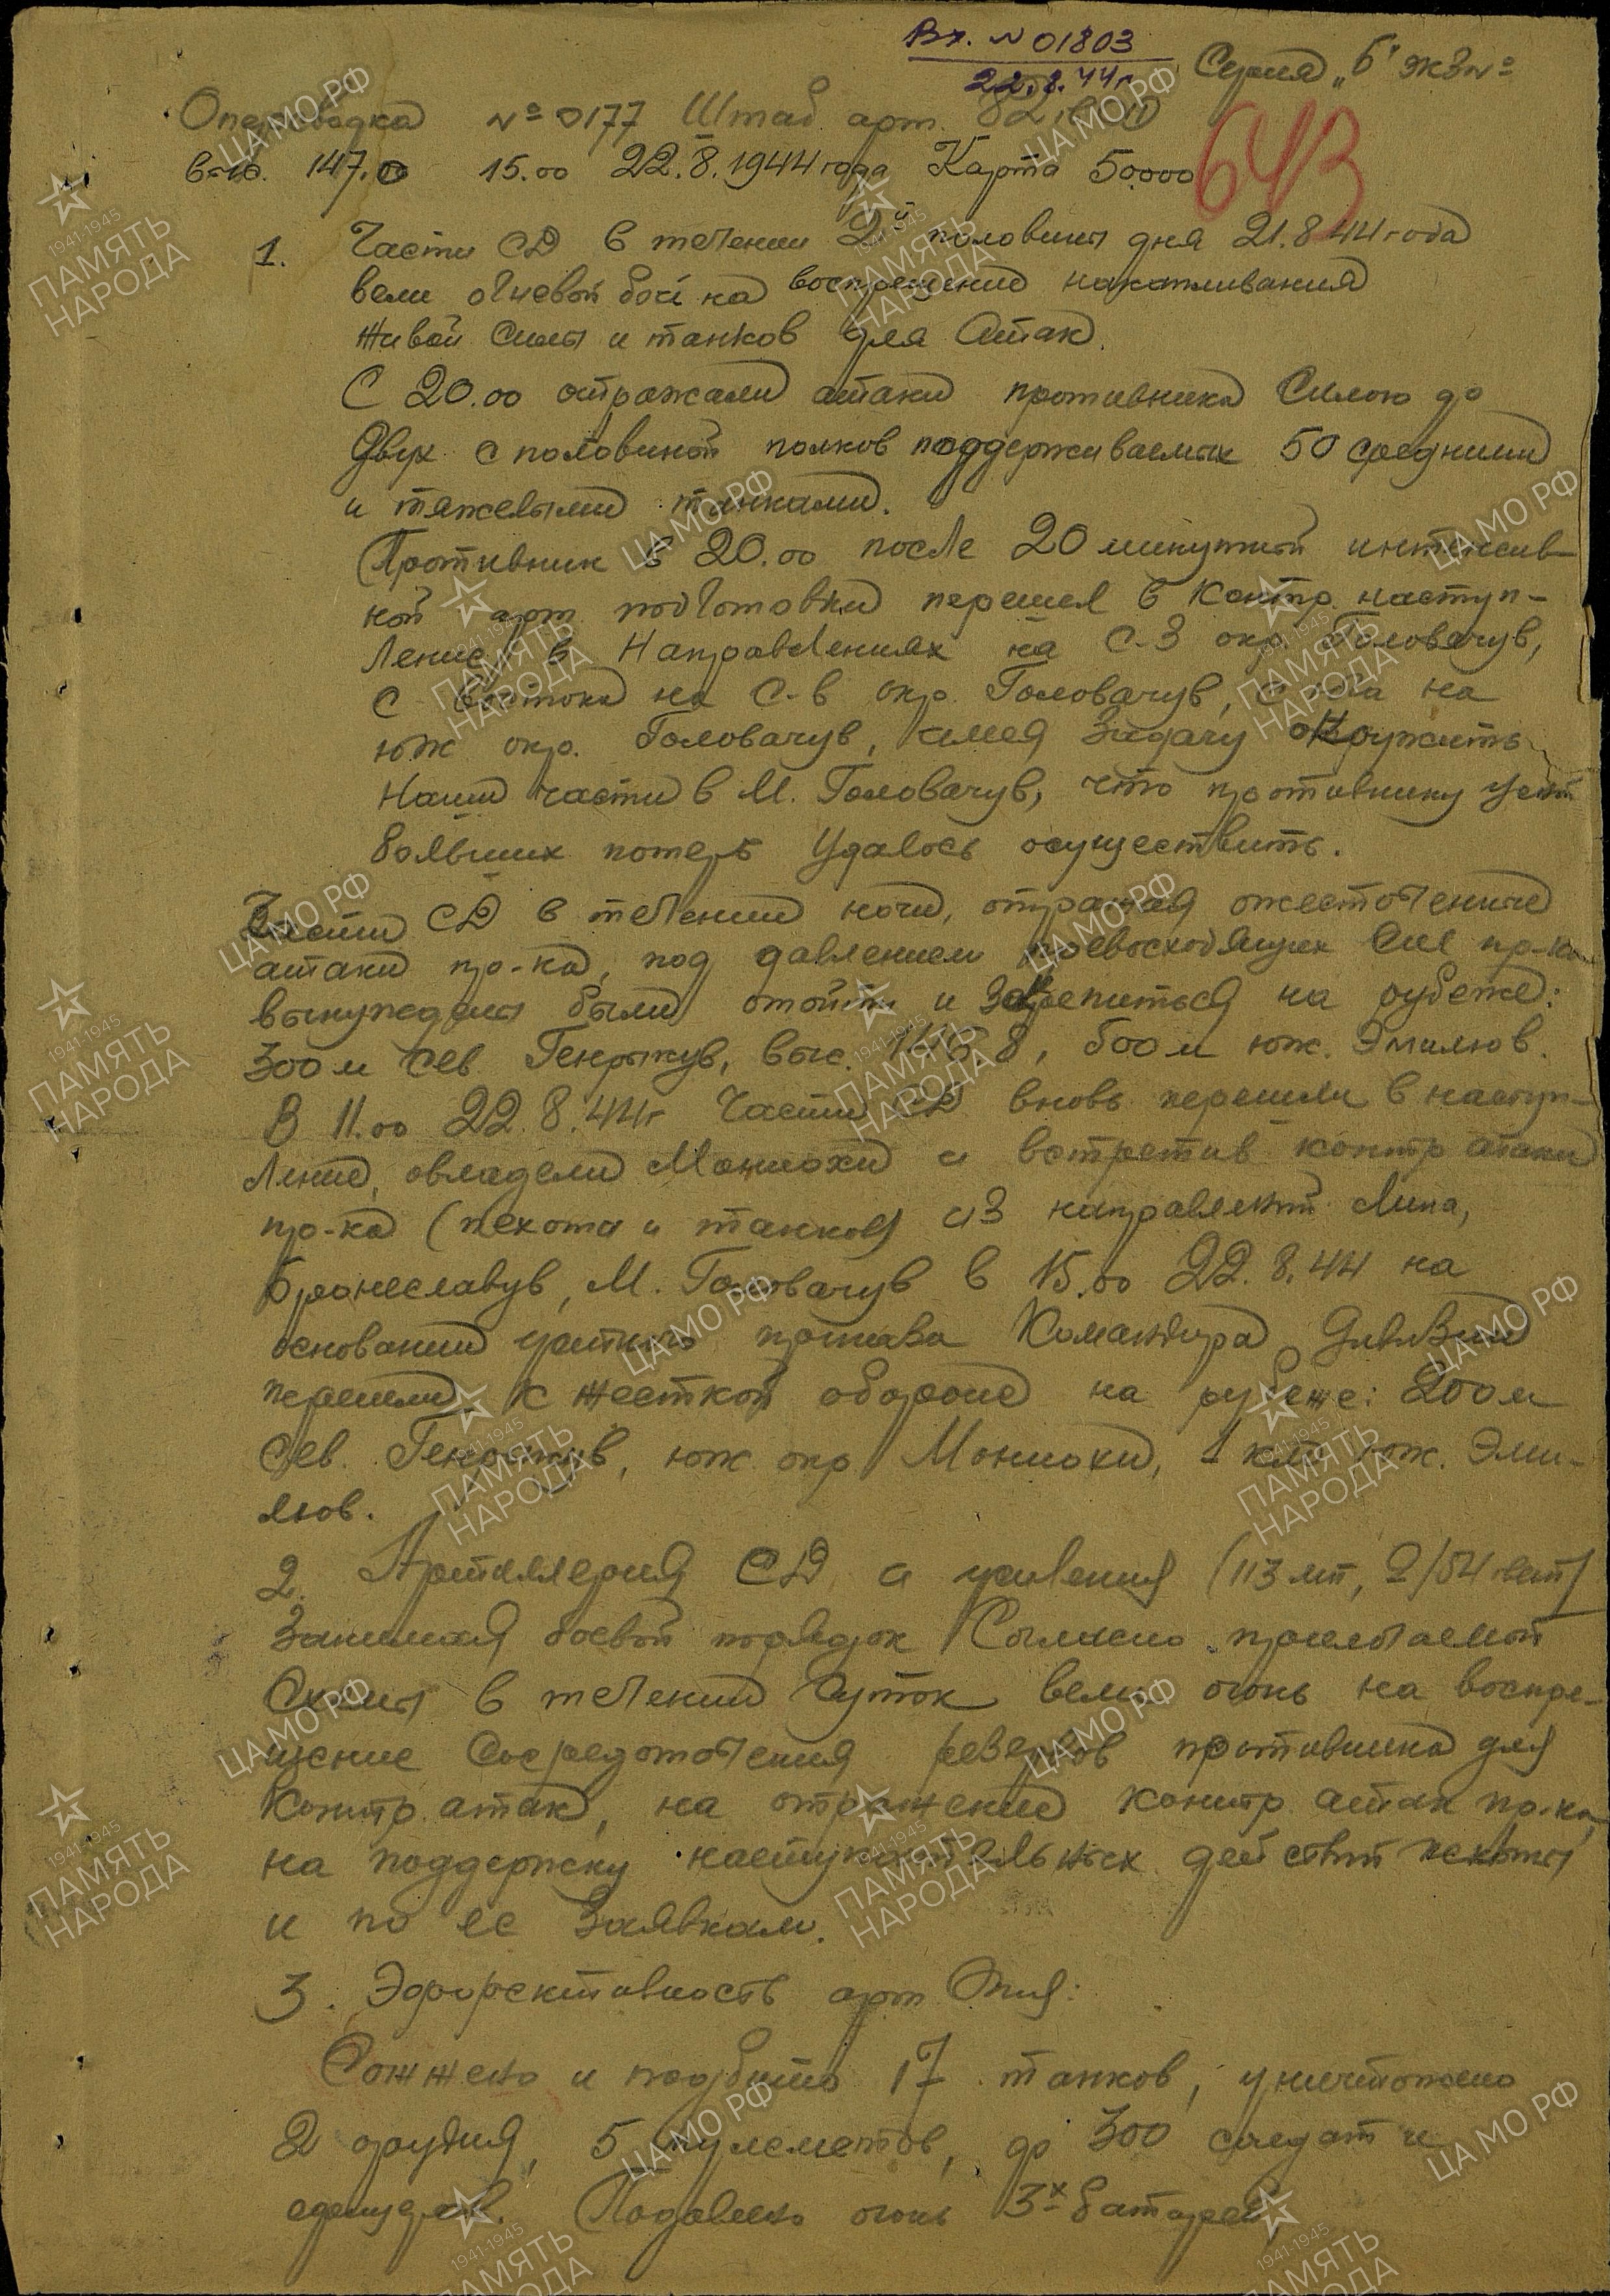 Вх. № 01803
22.8.44г.
Серия „Б" экз №
643
Оперсводка №0177 Штаб арт. 82
выс. 147.0 15.00 22.8.1944 года Карта 50.000
1. Части СД в течении 2й половины дня 21.8.44 года
вели огневой бой на воспрещение накапливания
живой силы и танков для атак.
С 20.00 отражали атаки противника силою до
двух с половиной полков поддерживаемых 50 средними
и тяжелыми танками.
Противник в 20.00 после 20 минутной интенсив-
ной арт. подготовки перешел в контр. наступ-
ление в направлениях на С-З окр. Головачув,
с востока на С-В окр. Головачув, с юга на
юж окр. Головачув, имея задачу окружить
наши части в М. Головачув, что противнику ценой
больших потерь удалось осуществить.
Части СД в течении ночи, отражая ожесточенные
атаки пр-ка, под давлением превосходящих сил пр-ка
вынуждены были отойти и закрепиться на рубеже:
300 м сев. Генрыкув, выс. 146.8, 600 м юж. Эмилюв.
В 11.00 22.8.44г Части СД вновь перешли в наступ-
ление, овладели Мониохи и встретив контр атаки
пр-ка (пехота и танков) из направлений Липа,
Бронеславув, М. Головачув в 15.00 22.8.44 на
основании устного приказа Командира Дивизии
перешли к жесткой обороне на рубеже: 200 м
Сев. Генрыкув, юж. окр Мониохи, 1 клм юж. Эми-
люв.
2. Артиллерия СД и усиления (113 мп, 2/54 гвмп)
занимая боевой порядок согласно прилагаемой
схемы в течении суток вели огонь на воспре-
щение сосредоточения резервов противника для
контр. атак, на отражение контр. атак пр-ка,
на поддержку наступательных действий пехоты
и по ее заявкам.
3. Эффективность арт огня:
Сожжено и подбито 17 танков, уничтожено
2 орудия, 5 пулеметов, до 300 солдат и
офицеров. Подавлено огонь 3х батарей,
ЦАМО РФ
1941-1945
ПАМЯТЬ
НАРОДА